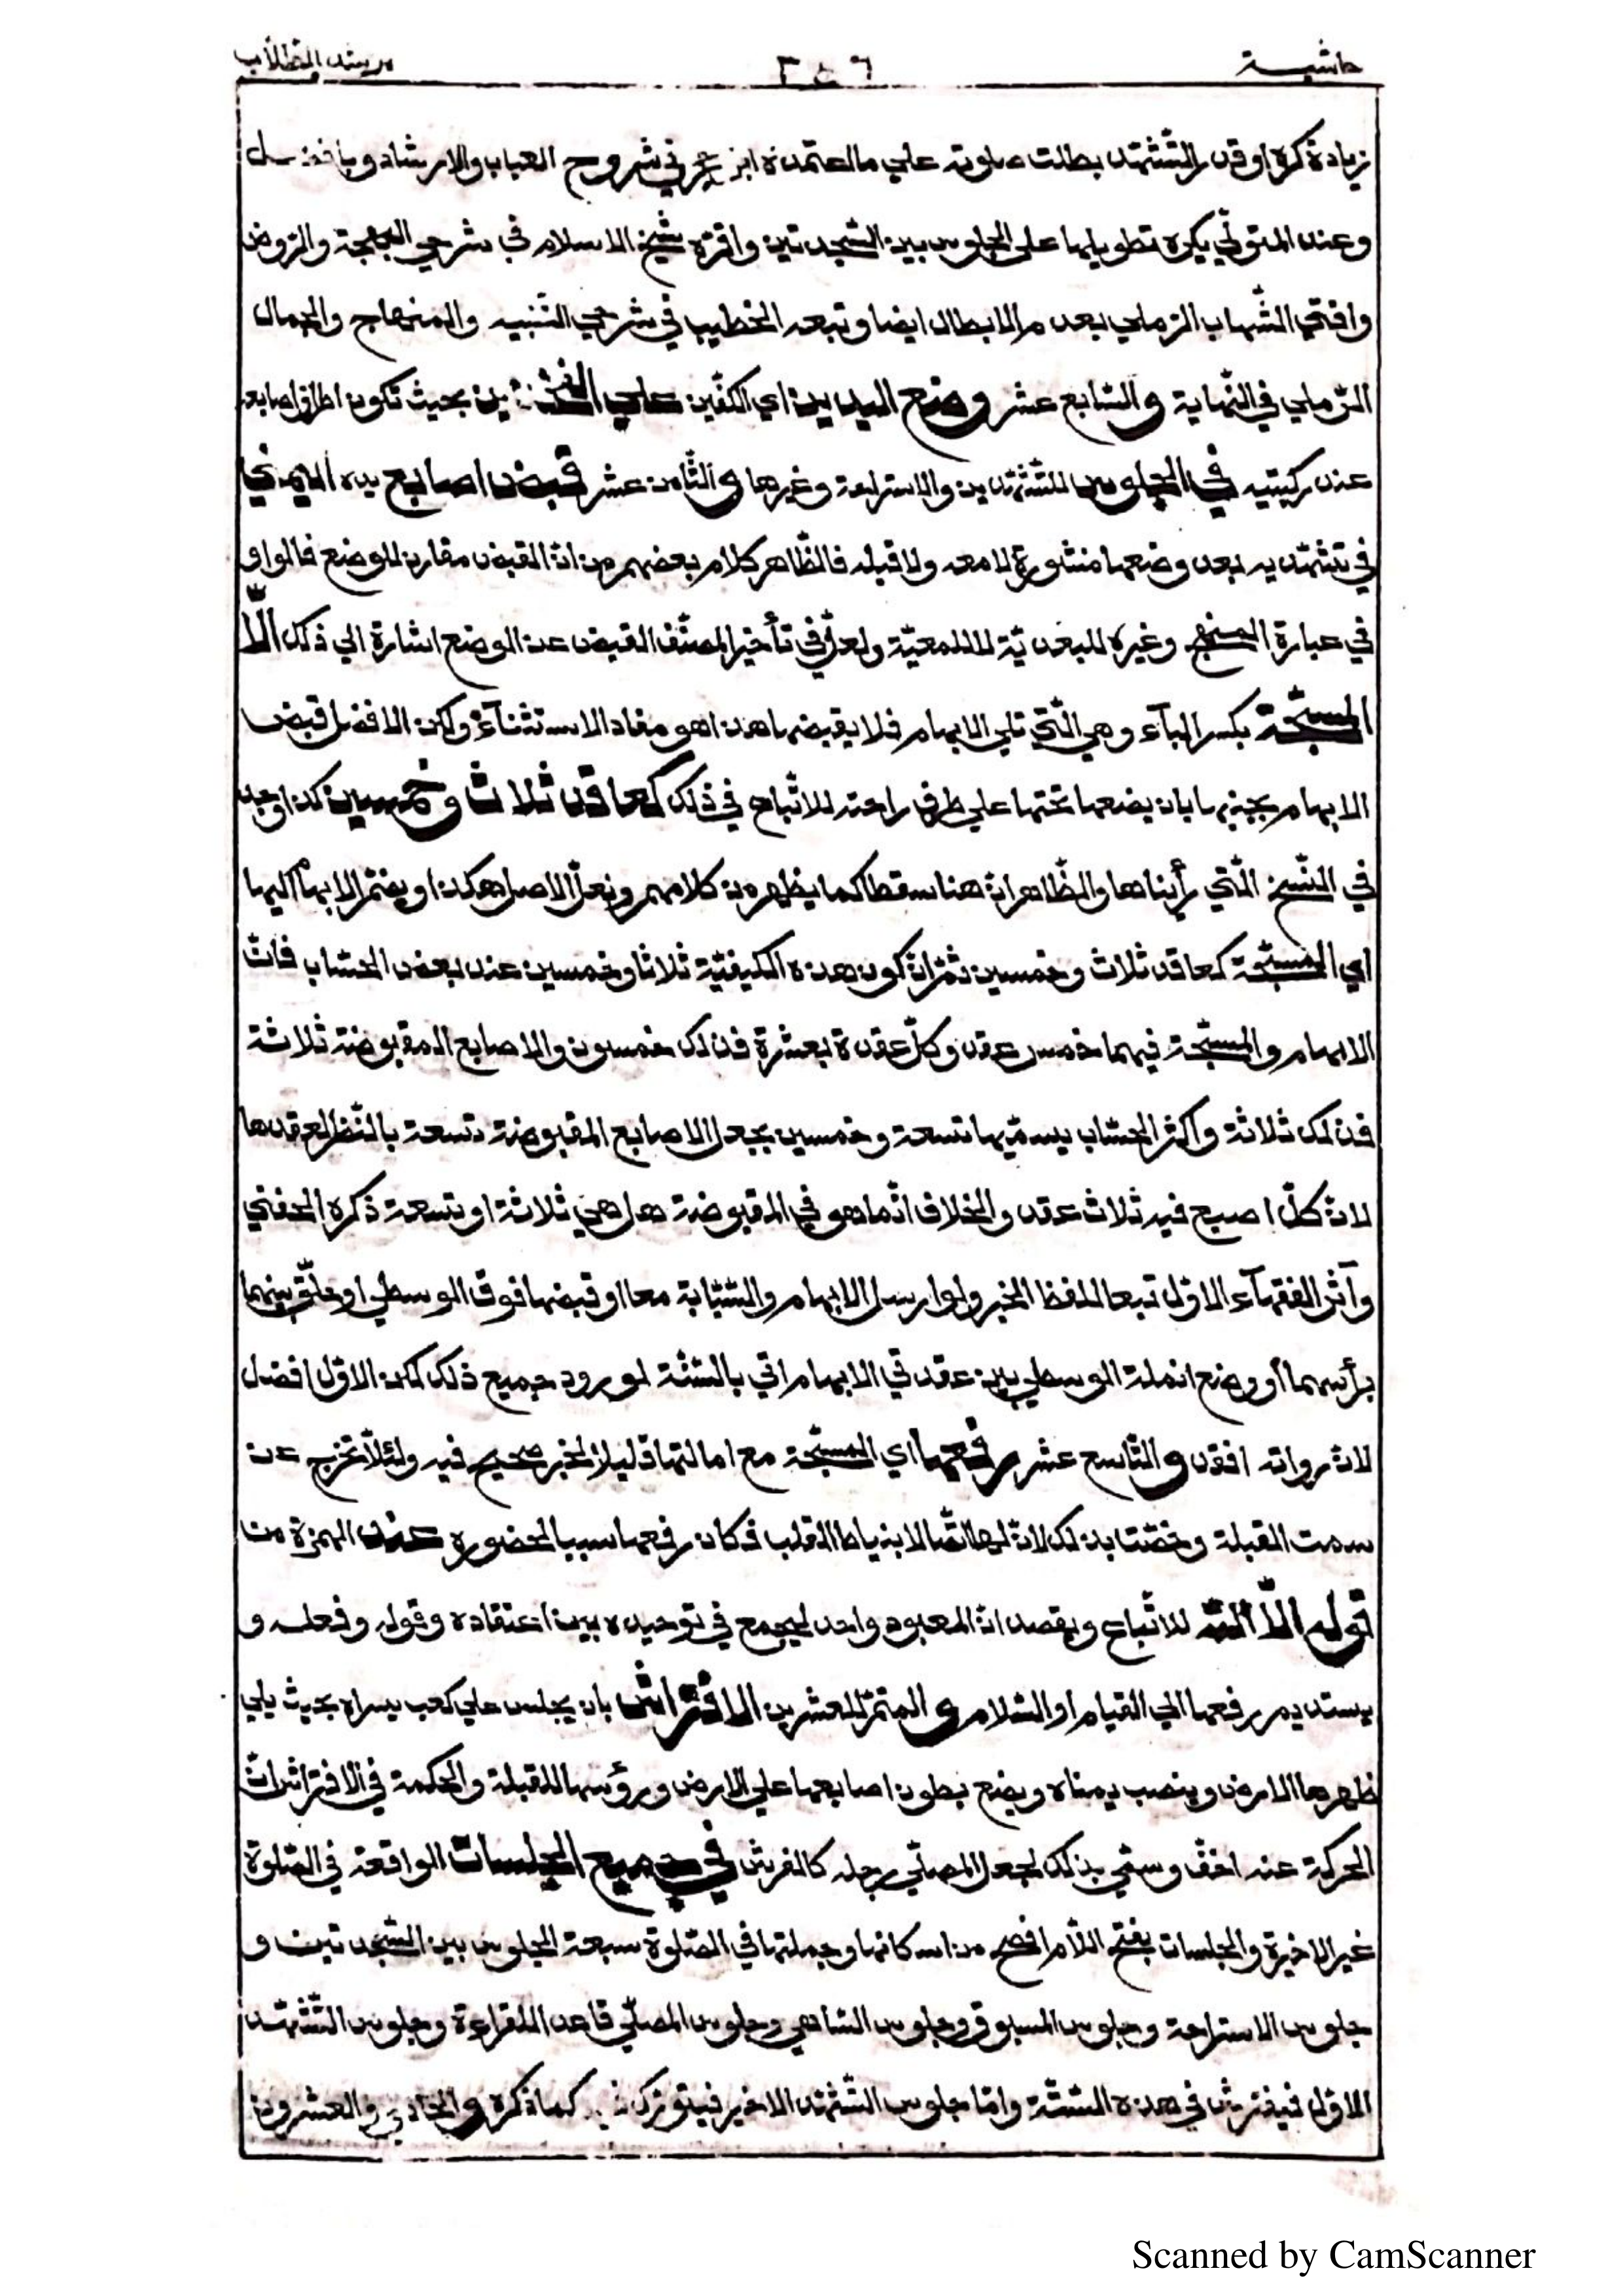 حاشية ٣٤٦ مرشد الطلاب
زيادة ذكره او قدر التّشهّد بطلت صلوته علي ما اعتمده ابن حجر في شروح العباب والارشاد وبافضل
وعند المتولّي يكره تطويلها علي الجلوس بين السّجدتين واقرّه شيخ الاسلام في شرحي البهجة والرّوض
وافتي الشّهاب الرّملي بعدم الابطال ايضا وتبعه الخطيب في شرحي التّنبيه والمنهاج والجمال
الرّملي في النّهاية والسّابع عشر وضع اليدين اي الكفّين علي الفخذين بحيث تكون اطراف اصابعه
عند ركبتيه في الجلوس للتّشهّدين والاستراحة وغيرها والثّامن عشر قبض اصابع يده اليمني
في تشهّديه بعد وضعها منشورة لا معه ولا قبله فالظّاهر كلام بعضهم من انّ القبض مقارن للوضع فالواو
في عبارة المنهج وغيره للبعديّة لا للمعيّة ولعلّ في تأخير المصنّف القبض عن الوضع اشارة الي ذلك الّا
المسبّحة بكسر البآء وهي الّتي تلي الابهام فلا يقبضها هذا هو مفاد الاستثنآء ولكن الافضل قبض
الابهام بجنبها بان يضعها تحتها علي طرف راحته للاتّباع في ذلك كعاقد ثلاث وخمسين كذا وجد
في النّسخ الّتي رأيناها والظّاهر انّ هنا سقطا كما يظهر من كلامهم ولعلّ الاصل هكذا ويضمّ الابهام اليها
اي المسبّحة كعاقد ثلاث وخمسين ثمّ انّ كون هذه الكيفيّة ثلاثا وخمسين عند بعض الحسّاب فانّ
الابهام والمسبّحة فيهما خمس عقد وكلّ عقدة بعشرة فذلك خمسون والاصابع المقبوضة ثلاثة
فذلك ثلاثة واكثر الحسّاب يسمّيها تسعة وخمسين بجعل الاصابع المقبوضة تسعة بالنّظر لعقدها
لانّ كلّ اصبع فيه ثلاث عقد والخلاف انّما هو في المقبوضة هل هي ثلاثة او تسعة ذكره الحفني
وآثر الفقهآء الاوّل تبعا للفظ الخبر ولو ارسل الابهام والسّبّابة معا او قبضها فوق الوسطي او حلّق بينهما
برأسهما أو وضع انملة الوسطي بين عقدتي الابهام اتي بالسّنّة لورود جميع ذلك لكن الاوّل افضل
لانّ رواته افقه والتّاسع عشر رفعها اي المسبّحة مع امالتها قليلا لخبر صحيح فيه ولئلّا تخرج عن
سمت القبلة وخصّت بذلك لانّ لها اتّصالا بنياط القلب فكان رفعها سببا لحضوره عند الهمزة من
قوله الّا اللّه للاتّباع ويقصد انّ المعبود واحد ليجمع في توحيده بين اعتقاده وقوله وفعله و
يستديم رفعها الي القيام او السّلام والمتمّ للعشرين الافتراش بان يجلس علي كعب يسراه بحيث يلي
ظهرها الارض وينصب يمناه ويضع بطون اصابعها علي الارض ورؤسها للقبلة والحكمة في الافتراش انّ
الحركة عنه اخفّ وسمّي بذلك لجعل المصلّي رجله كالفرش في جميع الجلسات الواقعة في الصّلوة
غير الاخيرة والجلسات بفتح اللّام افصح من اسكانها وجملتها في الصّلوة سبعة الجلوس بين السّجدتين و
جلوس الاستراحة وجلوس المسبوق وجلوس السّاهي وجلوس المصلّي قاعدا للقراءة وجلوس التّشهّد
الاوّل فيفترش في هذه السّتّة وامّا جلوس التّشهّد الاخير فيتورّك كما ذكره والحادي والعشرون
Scanned by CamScanner